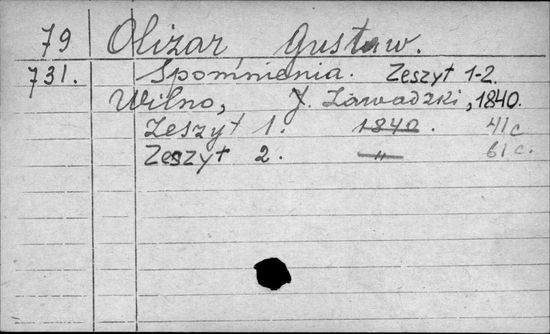 79 Olizar, Gustaw.
731. Spomnienia. Zeszyt 1-2.
Wilno, J. Zawadzki, 1840.
Zeszyt 1. 1840. 41 c
Zeszyt 2. " 61 c.